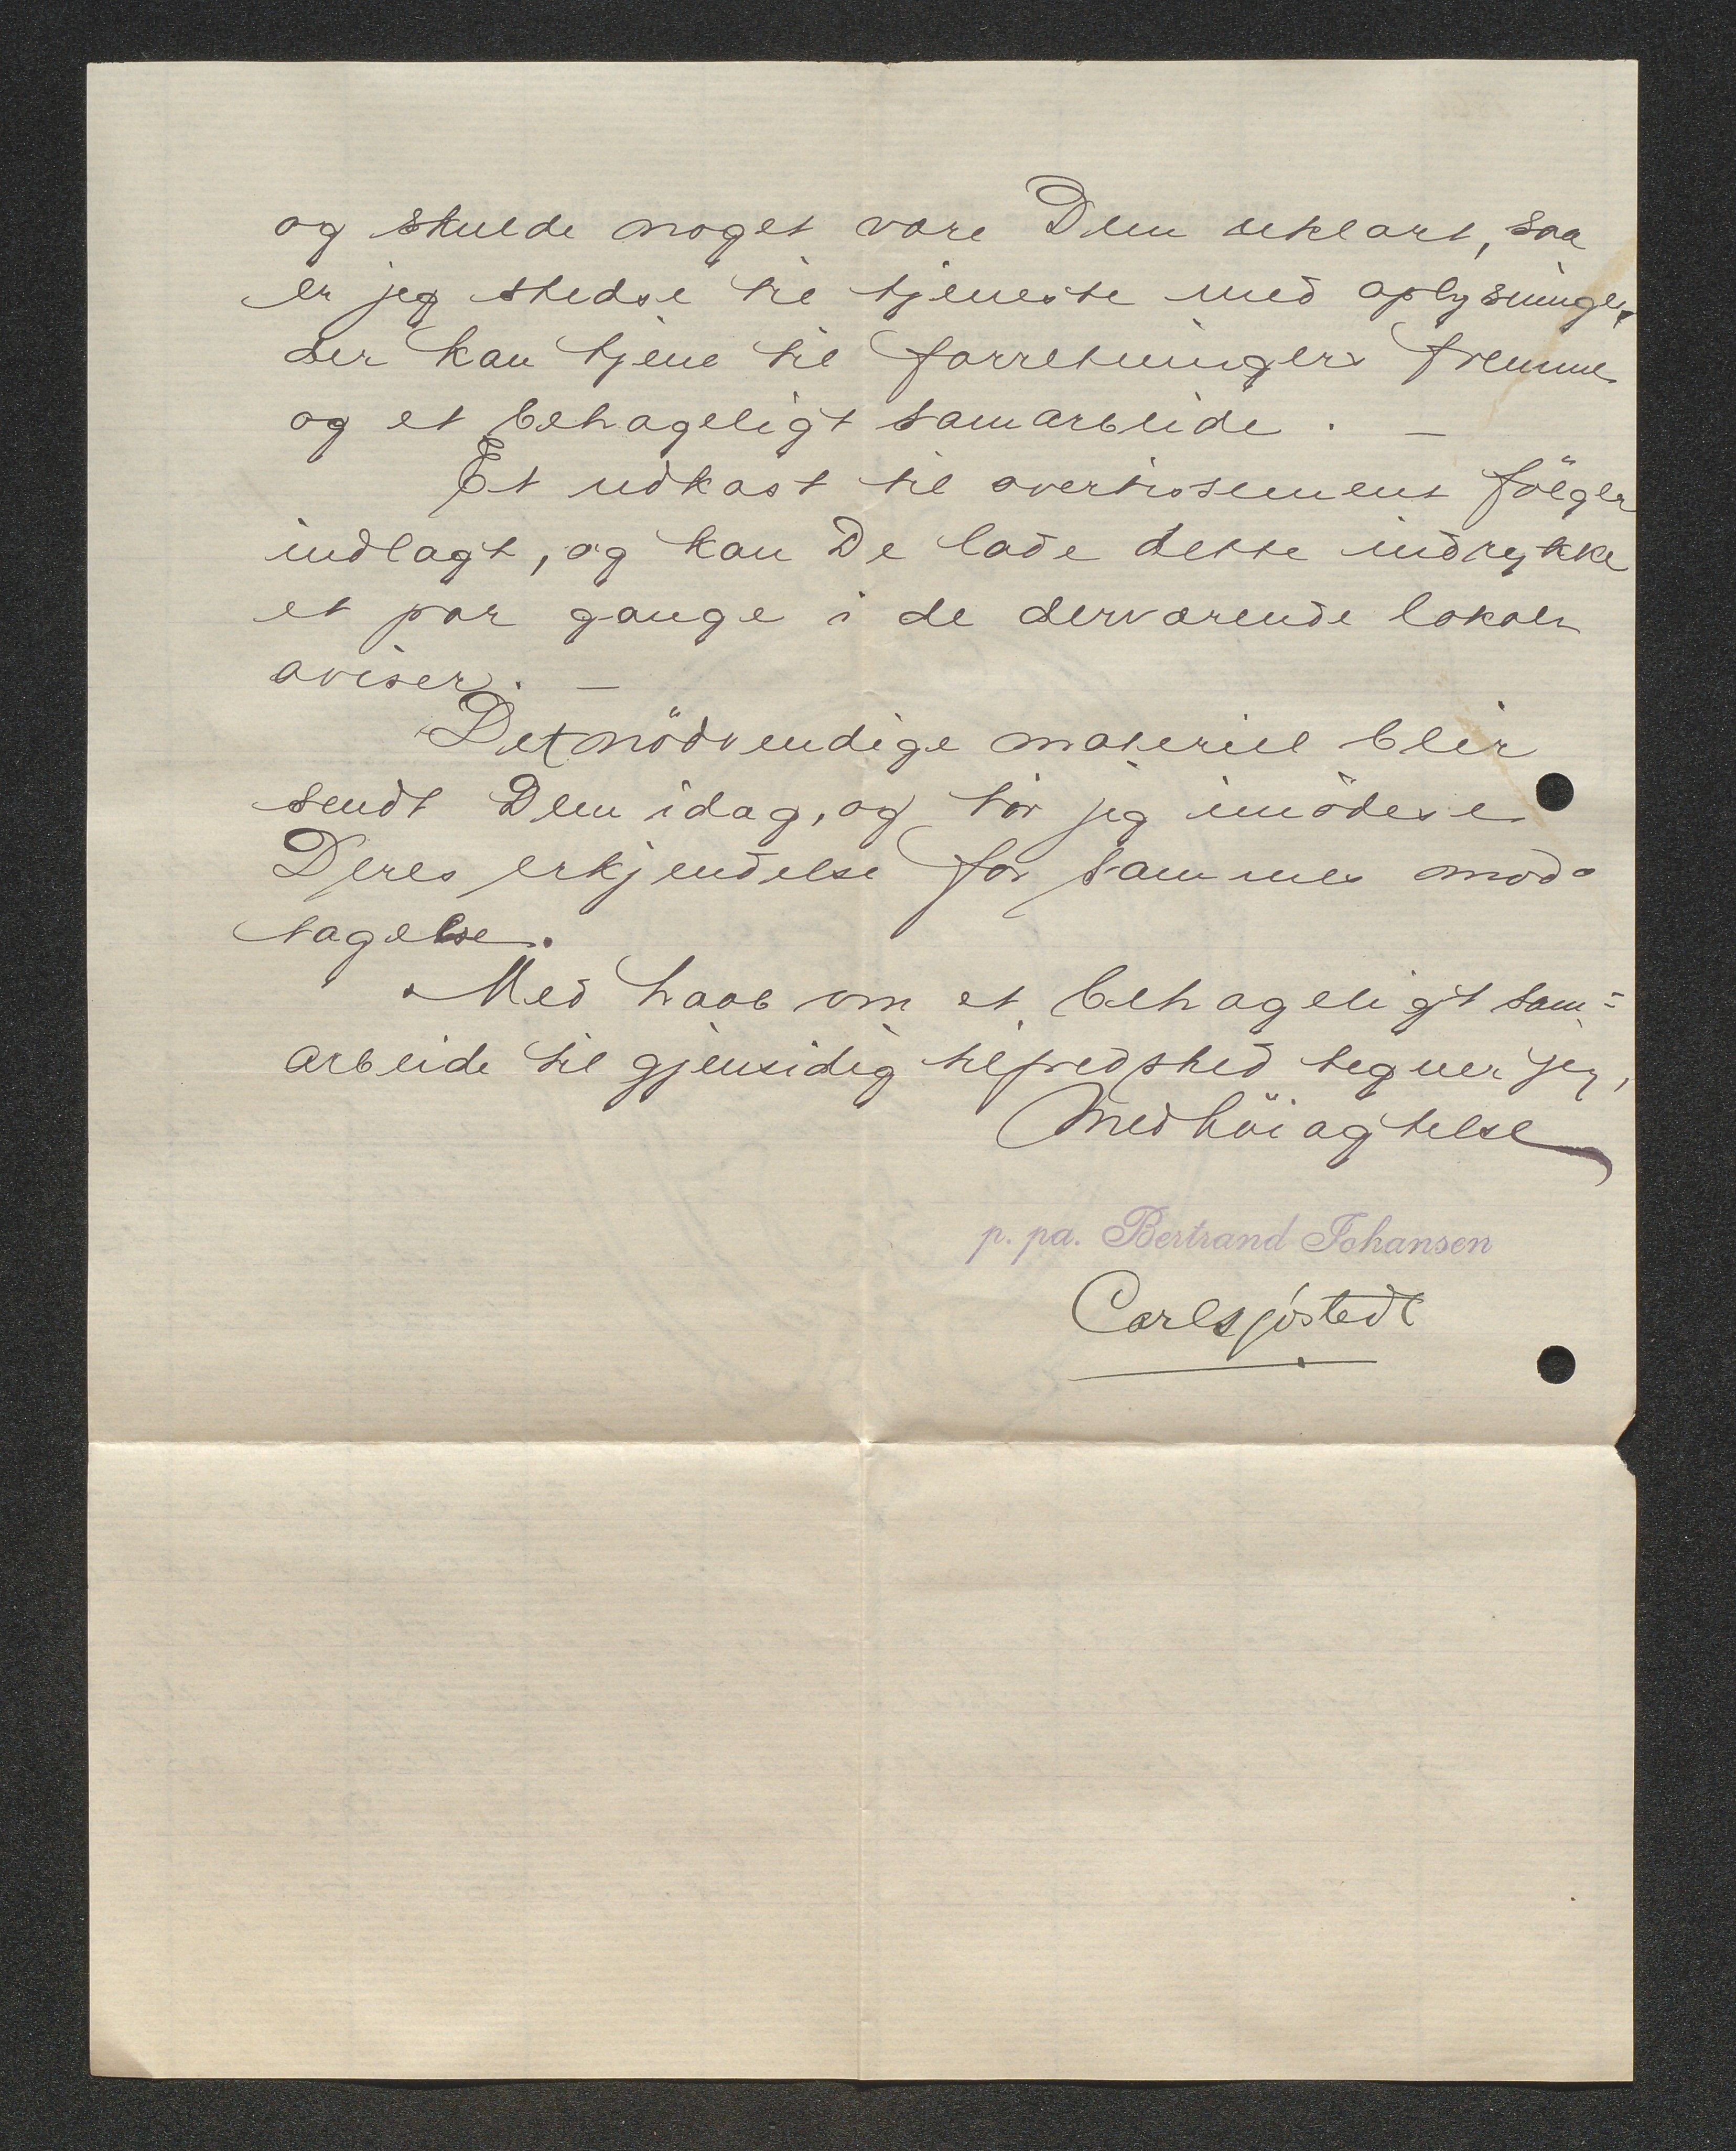 og skulde noget være Dem uklart, saa
er jeg stedse til tjeneste med oplysninger,
der kan tjene til forretningers fremme
og et behageligt samarbeide. —
Et udkast til avertissement fölger
indlagt, og kan De lade dette indrykke
et par gange i de derværende lokale
aviser. —
Det nödvendige materiel blir
sendt Dem idag, og tör jeg imödese
Deres erkjendelse for sammes mod-
tagelse.
Med haab om et behageligt sam=
arbeide til gjensidig tilfredshed tegner jeg,
Med höiagtelse
p. pa. Bertrand Johansen
Carl Sjöstedt